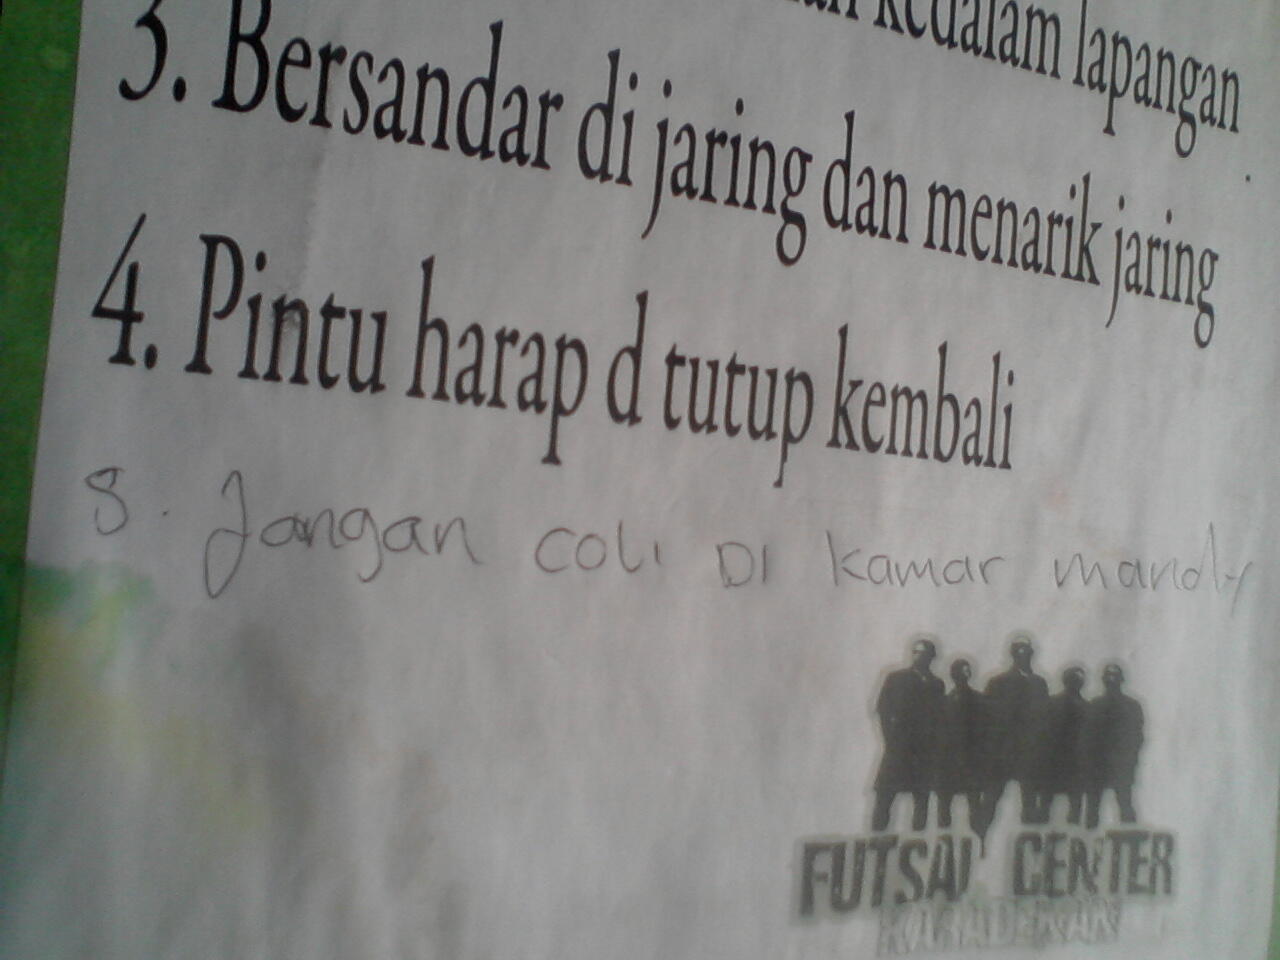 kedalam lapangan
3. Bersandar di jaring dan menarik jaring
4. Pintu harap d tutup kembali
5. Jangan coli Di kamar mandi
FUTSAL CENTER